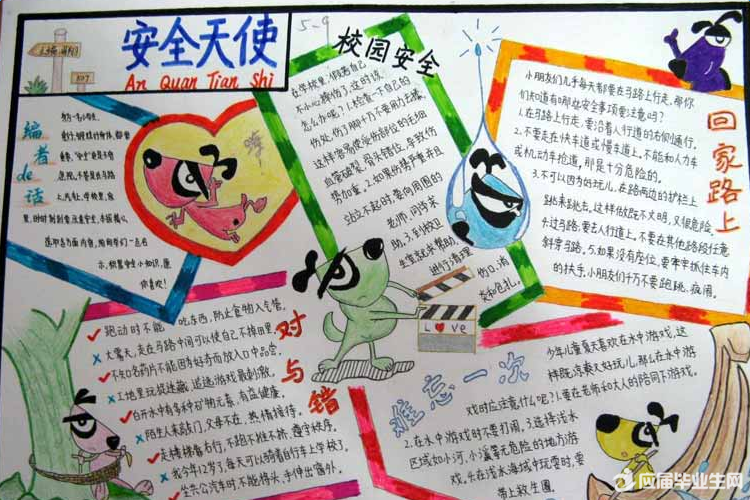 安全天使
An Quan Tian Shi
5-9
校园安全
在学校里,假若自己
不小心摔伤了,这时该
怎么办呢?1.检查一下自己的
伤处,伤了脚千万不要用力去揉,
这样容易使受伤部位的毛细
血管破裂、骨头错位,导致伤
势加重。2.如果伤势严重并且
站立不起时,要向周围的
老师、同学求
助。3.到校卫
生室就来帮助
进行清理
伤口,消
炎和包扎。
回家路上
小朋友们几乎每天都要在马路上行走,那你
们知道有哪些安全事项要注意吗?
1.在马路上行走,要沿着人行道的右侧通行。
2.不要走在快车道或慢车道上。不能和人力车
或机动车抢道,那是十分危险的。
3.不可以因为好玩儿,在路两边的护栏上
跳来跳去。这样做既不文明,又很危险。
去过马路,要去人行道上。不要在其他路段任意
斜穿马路。5.如果没有座位,要牢牢抓住车内
的扶手,小朋友们千万不要跑跳、疯闹。
编者de话
对与错
跑动时不能吃东西,防止食物入气管。
大雾天,走在马路中间可以使自己不掉田里。
不知名药片不能因为好奇而放入口中品尝。
工地里玩捉迷藏,追逃游戏最刺激。
白开水中有多种矿物元素,有益健康。
陌生人来我们,父母不在,热情接待。
走楼梯靠右行,不跑不推不挤,遵守秩序。
我今年12岁了,每天可以骑着自行车上学校了。
坐公共汽车时不能将头,手伸出窗外。
Love
难忘一次
少年儿童夏天喜欢在水中游戏,这
样既凉爽又好玩儿,那么在水中游
戏时应注意什么呢?1.要在老师和大人的陪同下游戏。
2.在水中游戏时不要打闹。3.选择浅水
区域如小河、小溪等无危险的地方游
戏。4.在清水海域中玩耍时,要
带上救生圈
应届毕业生网